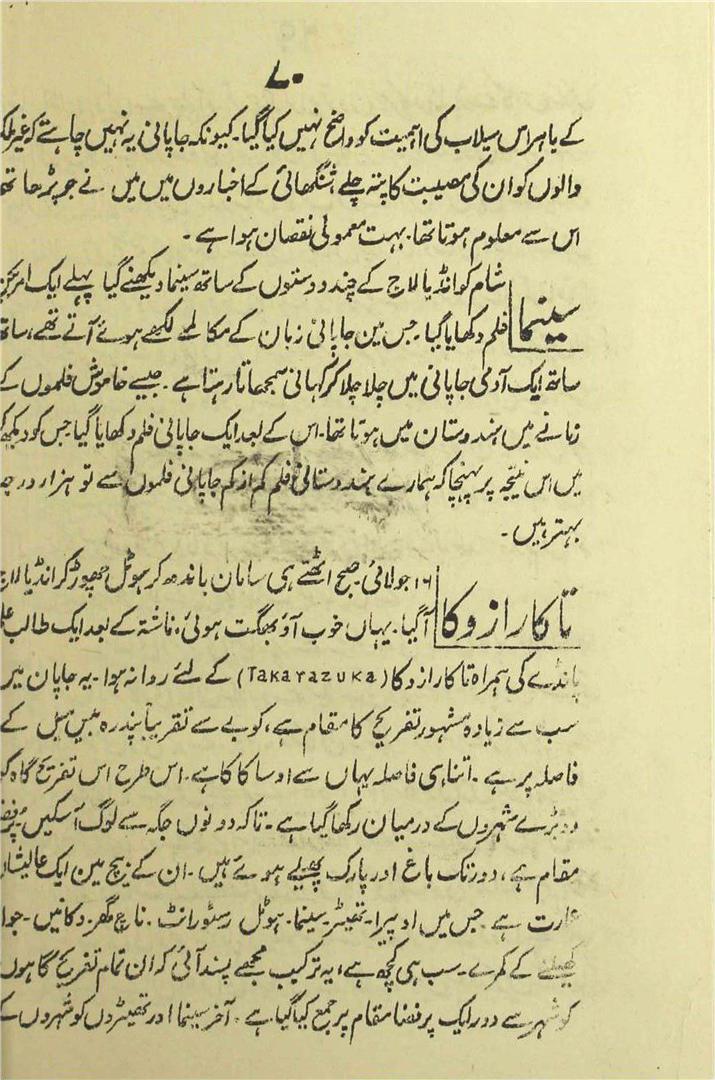 ۷۰
کے باہر اس سیلاب کی اہمیت کو واضح نہیں کیا گیا۔ کیونکہ جاپانی یہ نہیں چاہتے کہ غیر ملک
والوں کو ان کی مصیبت کا پتہ چلے شنگھائی کے اخباروں میں میں نے جو پڑھا تھا
اس سے معلوم ہوتا تھا۔ بہت معمولی نقصان ہوا ہے ۔
سینما
شام کو انڈیا لاج کے چند دوستوں کے ساتھ سینما دیکھنے گیا پہلے ایک امریکن
فلم دکھایا گیا۔ جس مین جاپانی زبان کے مکالمے لکھے ہوئے آتے تھے، ساتھ
ساتھ ایک آدمی جاپانی میں چلا چلا کر کہانی سمجھاتا رہتا ہے ۔ جیسے خاموش فلموں کے
زمانے میں ہندوستان میں ہوتا تھا۔ اس کے بعد ایک جاپانی فلم دکھایا گیا جس کو دیکھ کر
میں اس نتیجہ پر پہنچا کہ ہمارے ہندوستانی فلم کم از کم جاپانی فلموں سے تو ہزار درجہ
بہتر ہیں ۔
تاکارازوکا
۱۶ جولائی۔ صبح اٹھتے ہی سامان باندھ کر ہوٹل چھوڑ کر انڈیا لاج
آگیا۔ یہاں خوب آؤ بھگت ہوئی، ناشتہ کے بعد ایک طالب علم
پانڈے کی ہمراہ تاکارازوکا (Takarazuka) کے لئے روانہ ہوا۔ یہ جاپان میں
سب سے زیادہ مشہور تفریح کا مقام ہے، کوبے سے تقریباً پندرہ بیس میل کے
فاصلہ پر ہے ۔ اتنا ہی فاصلہ یہاں سے اوساکا کا ہے۔ اس طرح اس تفریح گاہ کو
دو بڑے شہروں کے درمیان رکھا گیا ہے ۔ تاکہ دونوں جگہ سے لوگ آسکیں۔ پُرفضا
مقام ہے، دور تک باغ اور پارک پھیلے ہوئے ہیں ۔ ان کے بیچ مین ایک عالیشان
عمارت ہے جس میں اوپیرا۔ تھیٹر۔ سینما۔ ہوٹل رسٹورانٹ ۔ ناچ گھر۔ دکانیں ۔ جوا
کھیلنے کے کمرے ۔ سب ہی کچھ ہے، یہ ترکیب مجھے پسند آئی کہ ان تمام تفریح گاہوں
کو شہر سے دور ایک پر فضا مقام پر جمع کیا گیا ہے ۔ آخر سینما اور تھیٹروں کو شہروں کے